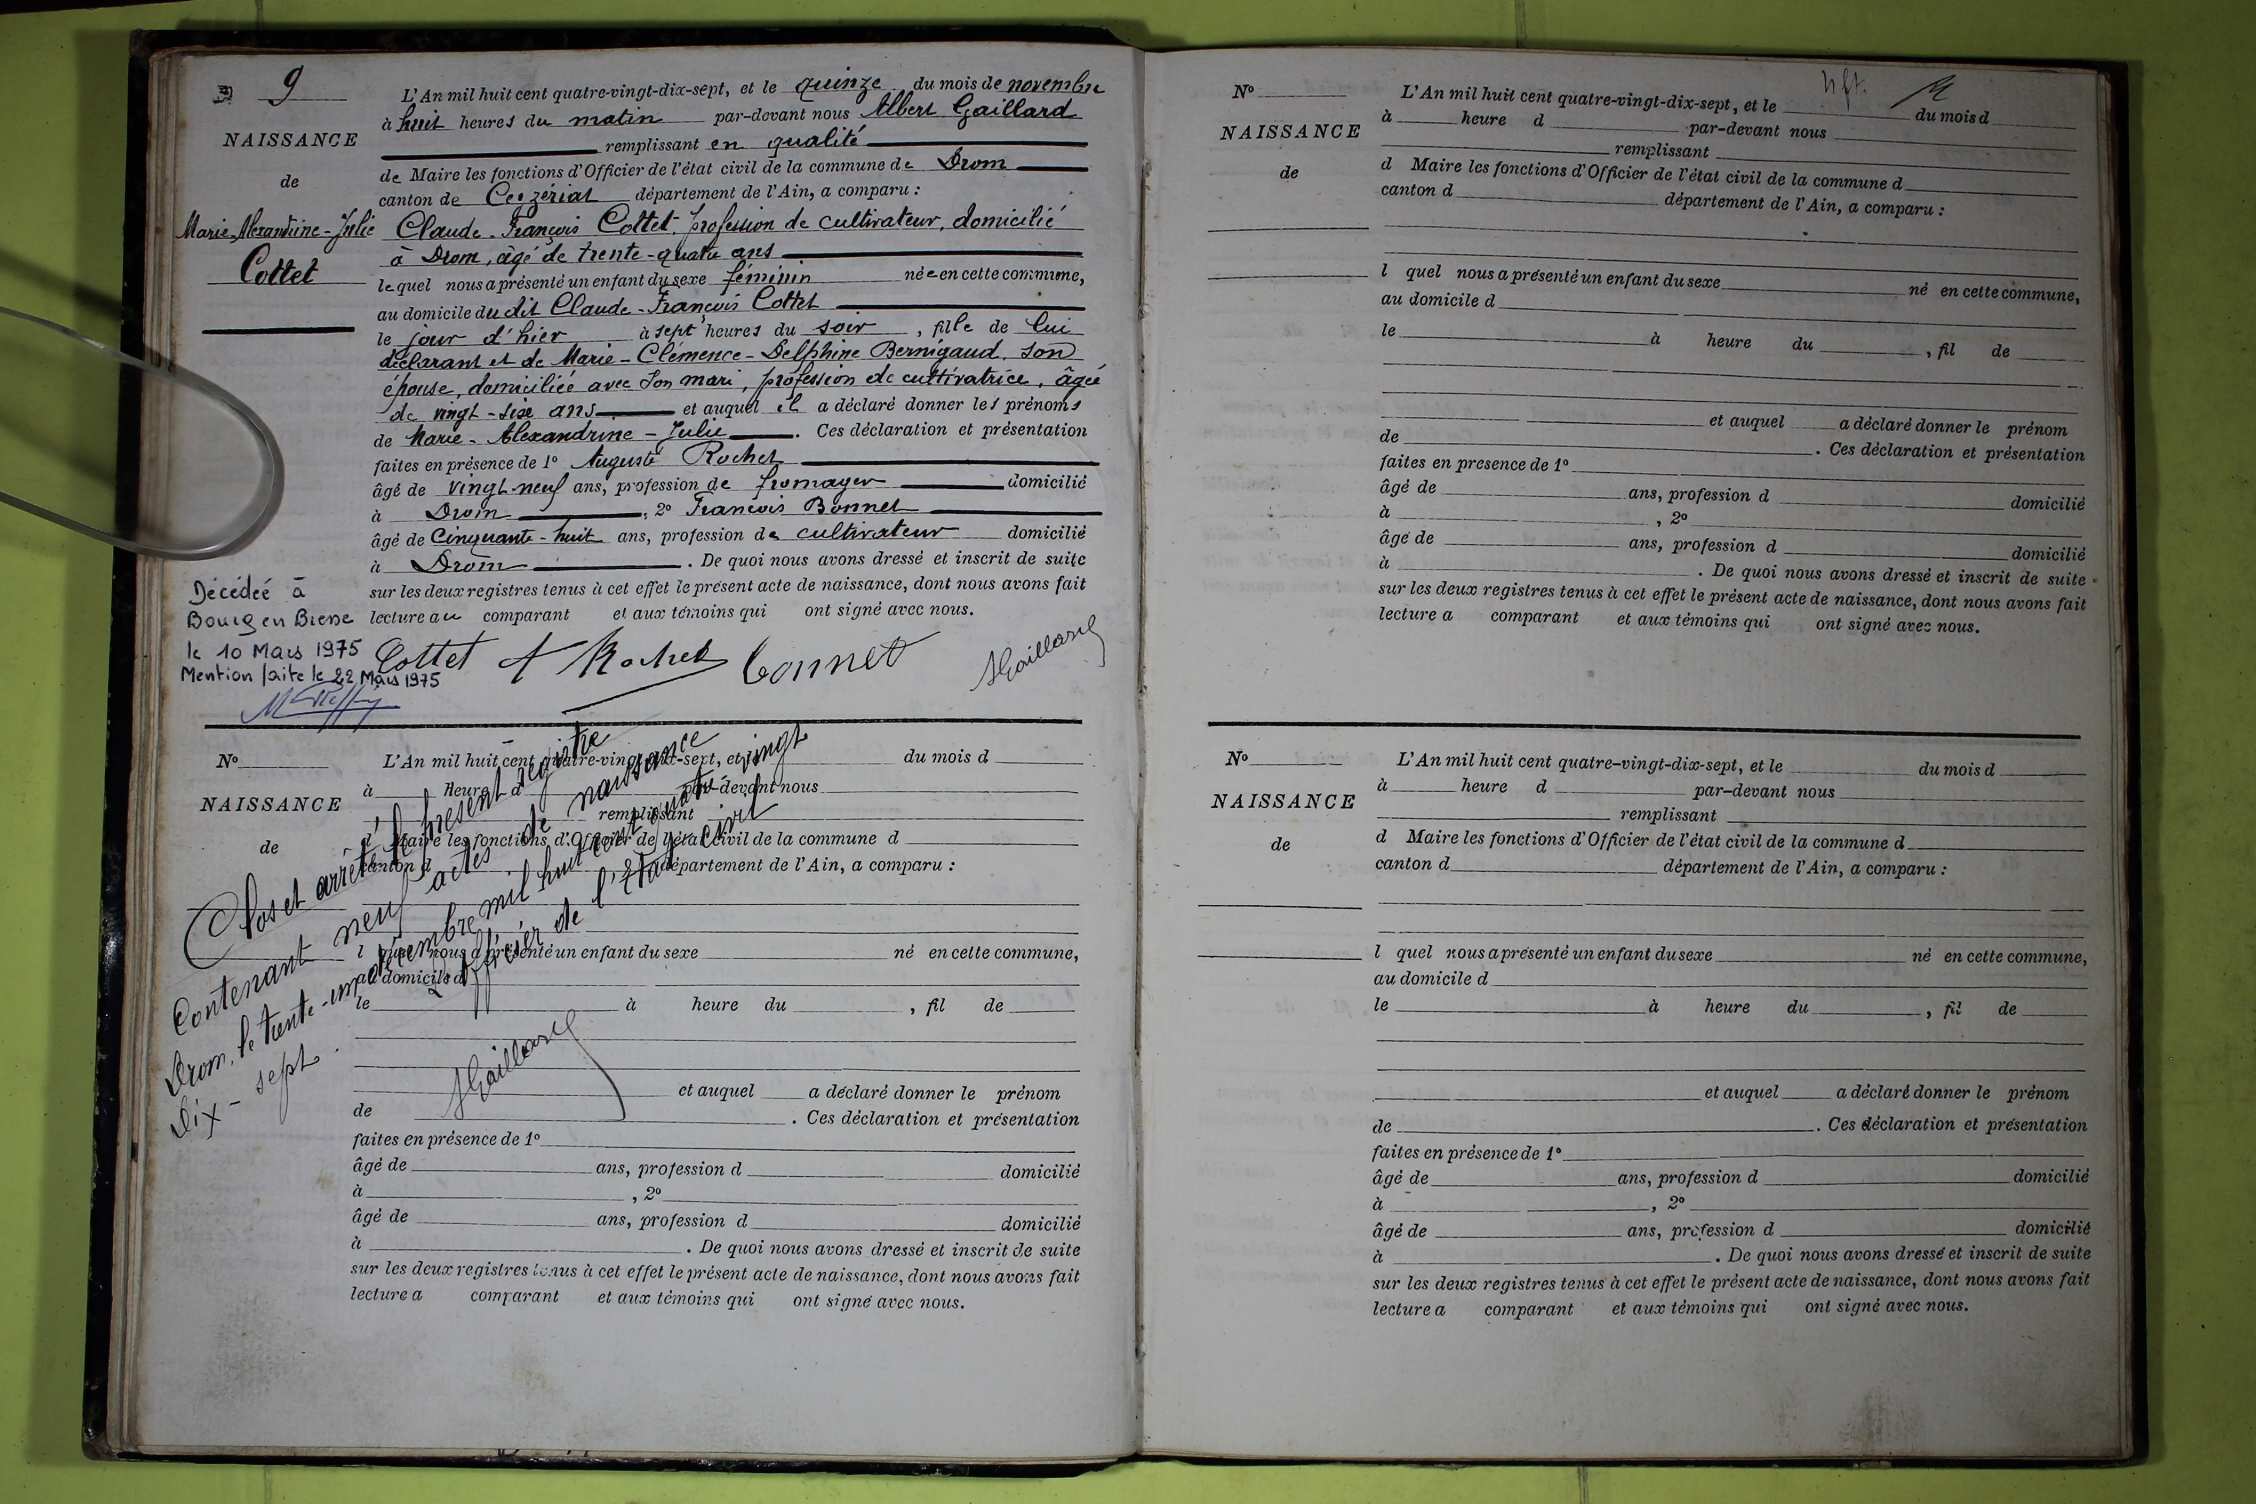 Nº 9
NAISSANCE
de
Marie-Alexandrine-Julie
Cottet
L'An mil huit cent quatre-vingt-dix-sept, et le quinze du mois de novembre
à huit heures du matin par-devant nous Albert Gaillard
remplissant en qualité
de Maire les fonctions d'Officier de l'état civil de la commune de Drom
canton de Ceyzériat département de l'Ain, a comparu :
Claude-François Cottet, profession de cultivateur, domicilié
à Drom, âgé de trente-quatre ans
lequel nous a présenté un enfant du sexe féminin née en cette commune,
au domicile du dit Claude-François Cottet
le jour d'hier à sept heures du soir, fille de lui
déclarant et de Marie-Clémence-Delphine Bernigaud, son
épouse, domiciliée avec son mari, profession de cultivatrice, âgée
de vingt-six ans et auquel il a déclaré donner les prénoms
de Marie-Alexandrine-Julie. Ces déclaration et présentation
faites en présence de 1º Auguste Rochet
âgé de vingt-neuf ans, profession de fromager domicilié
à Drom, 2º François Bonnet
âgé de cinquante-huit ans, profession de cultivateur domicilié
à Drom. De quoi nous avons dressé et inscrit de suite
sur les deux registres tenus à cet effet le présent acte de naissance, dont nous avons fait
lecture au comparant et aux témoins qui ont signé avec nous.
Décédée à
Bourg en Bresse
le 10 Mars 1975
Mention faite le 22 Mars 1975
Cottet A Rochet Bonnet AGaillard
Nº
NAISSANCE
de
L'An mil huit cent quatre-vingt-dix-sept, et le du mois d
à heure d par-devant nous
remplissant
d Maire les fonctions d'Officier de l'état civil de la commune d
canton d département de l'Ain, a comparu :
l quel nous a présenté un enfant du sexe né en cette commune,
au domicile d
le à heure du , fil de
et auquel a déclaré donner le prénom
de . Ces déclaration et présentation
faites en présence de 1º
âgé de ans, profession d domicilié
à , 2º
âgé de ans, profession d domicilié
à . De quoi nous avons dressé et inscrit de suite
sur les deux registres tenus à cet effet le présent acte de naissance, dont nous avons fait
lecture a comparant et aux témoins qui ont signé avec nous.
Clos et arrêté le présent registre
Contenant neuf actes de naissance
Drom, le trente-un décembre mil huit cent quatre vingt
dix-sept. L'officier de l'État civil
AGaillard
Nº
NAISSANCE
de
L'An mil huit cent quatre-vingt-dix-sept, et le du mois d
à heure d par-devant nous
remplissant
d Maire les fonctions d'Officier de l'état civil de la commune d
canton d département de l'Ain, a comparu :
l quel nous a présenté un enfant du sexe né en cette commune,
au domicile d
le à heure du , fil de
et auquel a déclaré donner le prénom
de . Ces déclaration et présentation
faites en presence de 1º
âgé de ans, profession d domicilié
à , 2º
âgé de ans, profession d domicilié
à . De quoi nous avons dressé et inscrit de suite
sur les deux registres tenus à cet effet le présent acte de naissance, dont nous avons fait
lecture a comparant et aux témoins qui ont signé avec nous.
Nº
NAISSANCE
de
L'An mil huit cent quatre-vingt-dix-sept, et le du mois d
à heure d par-devant nous
remplissant
d Maire les fonctions d'Officier de l'état civil de la commune d
canton d département de l'Ain, a comparu :
l quel nous a présenté un enfant du sexe né en cette commune,
au domicile d
le à heure du , fil de
et auquel a déclaré donner le prénom
de . Ces déclaration et présentation
faites en présence de 1º
âgé de ans, profession d domicilié
à , 2º
âgé de ans, profession d domicilié
à . De quoi nous avons dressé et inscrit de suite
sur les deux registres tenus à cet effet le présent acte de naissance, dont nous avons fait
lecture a comparant et aux témoins qui ont signé avec nous.